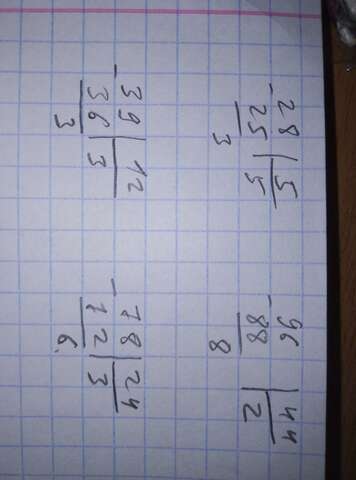 -28 | 5
25 | 5
3
-96 | 44
88 | 2
8
-39 | 12
36 | 3
3
-78 | 24
72 | 3
6